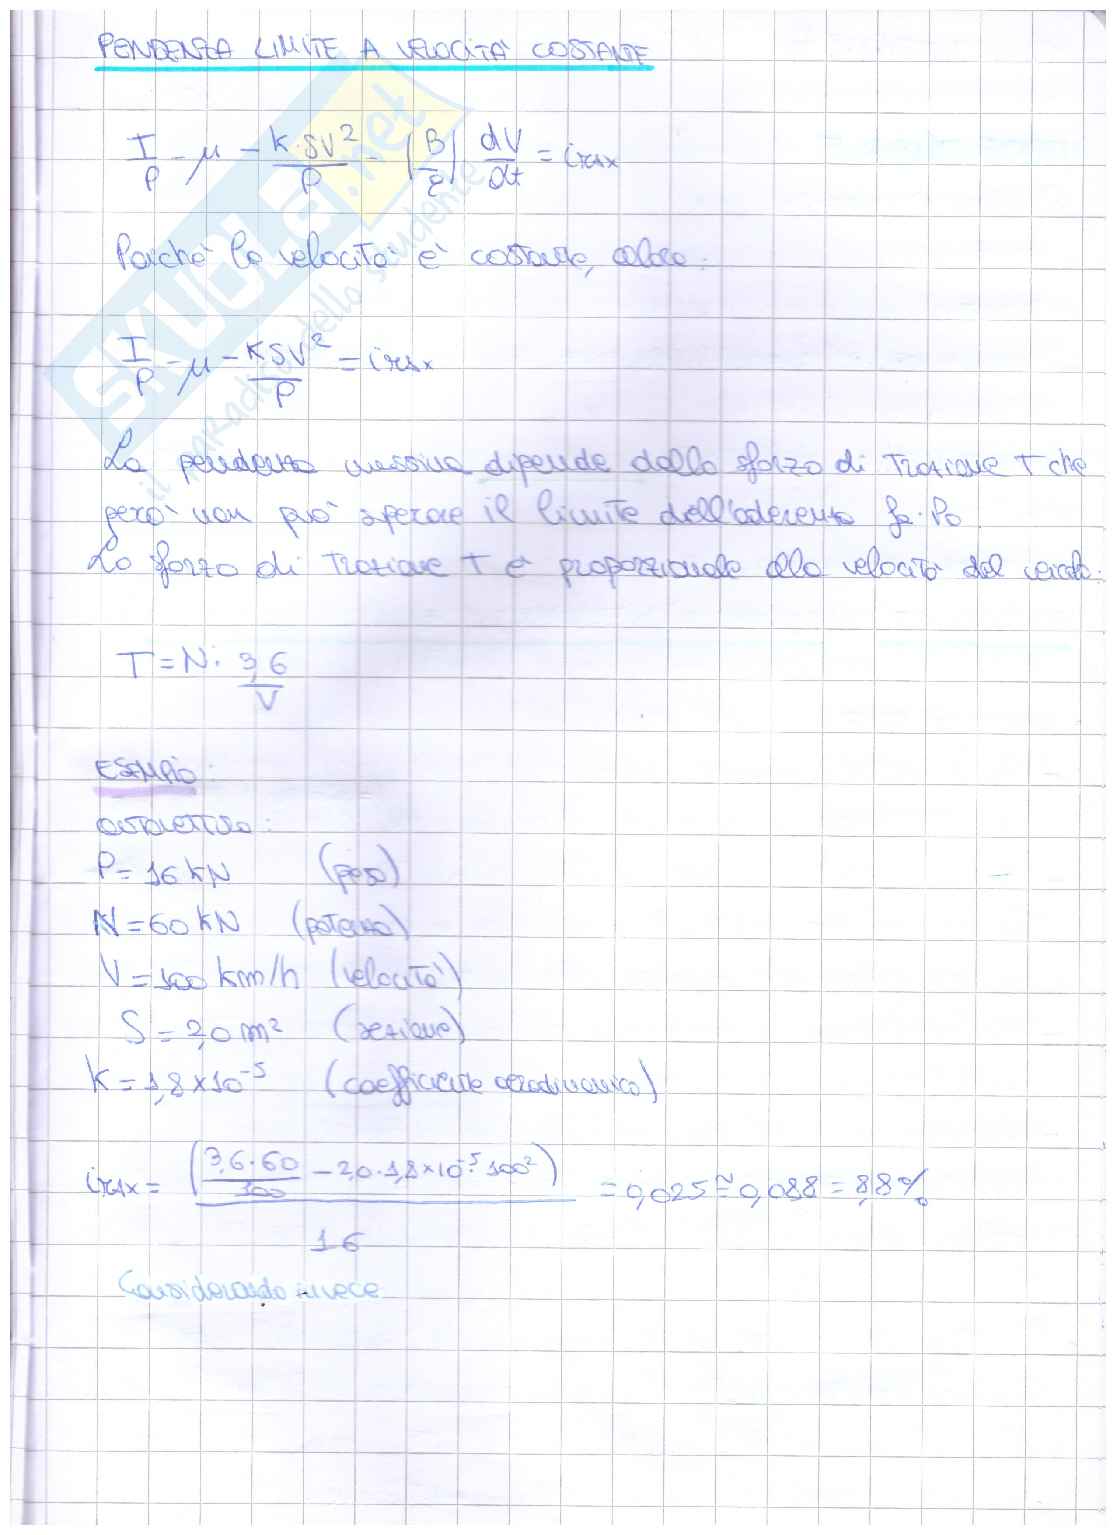 PENDENZA LIMITE A VELOCITÀ COSTANTE
T/P - μ - K·SV²/P - (B/g) dV/dt = imax
Poiché la velocità è costante, allora:
T/P - μ - KSV²/P = imax
La pendenza massima dipende dallo sforzo di trazione T che
però non può superare il limite dell'aderenza fa·Pa
Lo sforzo di trazione T è proporzionale alla velocità del veicolo:
T = N· 3,6/V
ESEMPIO:
autovettura:
P = 16 kN (peso)
N = 60 kN (potenza)
V = 100 km/h (velocità)
S = 2,0 m² (sezione)
K = 1,8×10⁻⁵ (coefficiente aerodinamico)
imax = (3,6·60/100 - 2,0·1,8×10⁻⁵·100²)/16 = 0,025 ≅ 0,088 = 8,8%
Considerando invece
SKUOLA.net
il paradiso dello studente